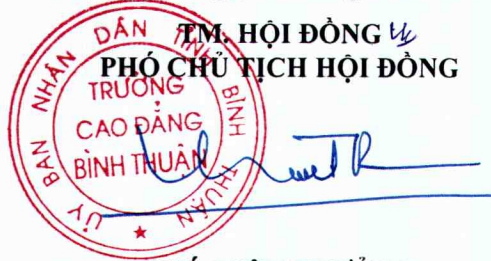 TM. HỘI ĐỒNG
PHÓ CHỦ TỊCH HỘI ĐỒNG
ỦY BAN NHÂN DÂN TỈNH BÌNH THUẬN
TRƯỜNG
CAO ĐẲNG
BÌNH THUẬN